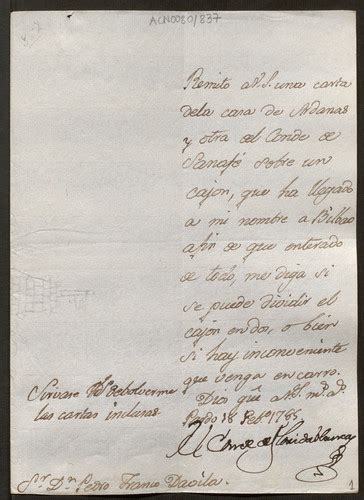 ACN0080/837
Remito a V.S. una carta
dela casa de Ardanas
y otra del Conde de
Sanafé sobre un
cajon, que ha llegado
a mi nombre a Bilbao
afin de que enterado
de todo, me diga si
se puede dividir el
cajon en dos, o bien
si hay inconveniente
que venga en carro.
Dios gũe a V.S. m.s a.s
Pardo 18 Feb.o 1785
Sirvase V.S. debolverme
las cartas inclusas
El Conde de Floridablanca
S.or D.n Pedro Franco Davila.
1